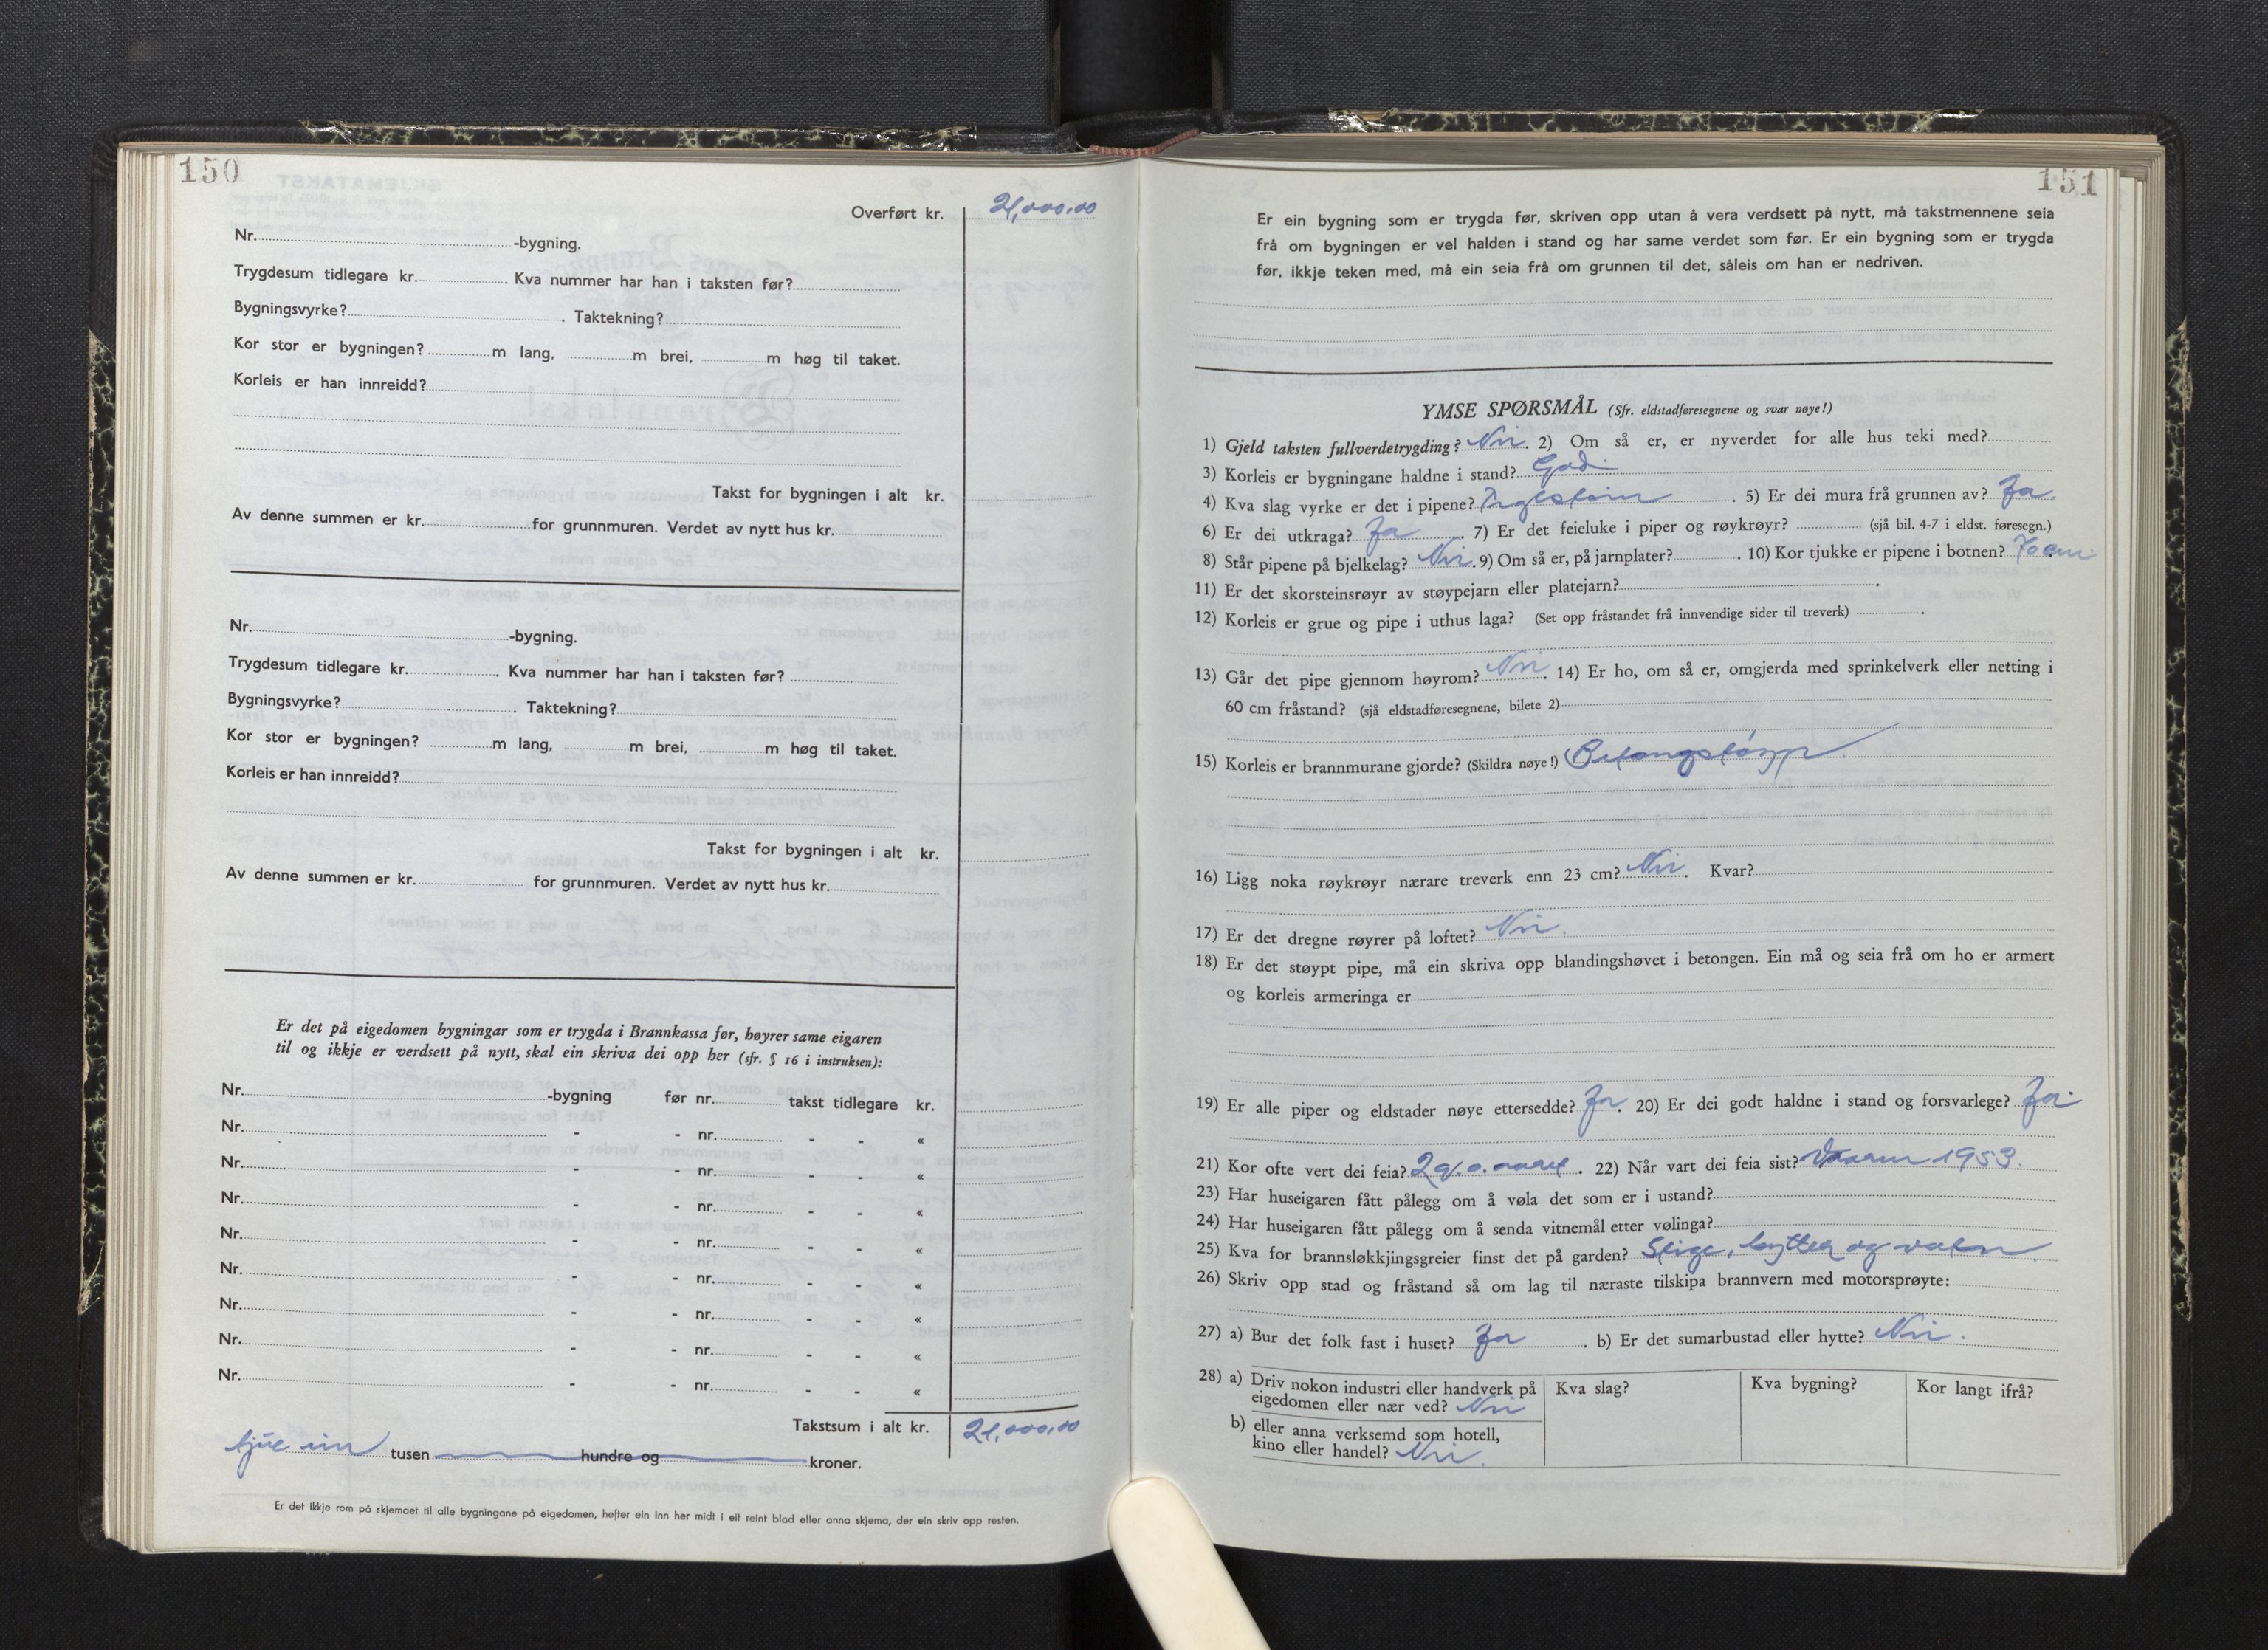 150
Overført kr. 21,000,00
Nr. -bygning.
Trygdesum tidlegare kr. . Kva nummer har han i taksten før?
Bygningsvyrke? . Taktekning?
Kor stor er bygningen? m lang, m brei, m høg til taket.
Korleis er han innreidd?
Takst for bygningen i alt kr.
Av denne summen er kr. for grunnmuren. Verdet av nytt hus kr.
Nr. -bygning.
Trygdesum tidlegare kr. . Kva nummer har han i taksten før?
Bygningsvyrke? . Taktekning?
Kor stor er bygningen? m lang, m brei, m høg til taket.
Korleis er han innreidd?
Takst for bygningen i alt kr.
Av denne summen er kr. for grunnmuren. Verdet av nytt hus kr.
Er det på eigedomen bygningar som er trygda i Brannkassa før, høyrer same eigaren
til og ikkje er verdsett på nytt, skal ein skriva dei opp her (sfr. § 16 i instruksen):
Nr. -bygning før nr. takst tidlegare kr.
Nr. - - nr. - - «
Nr. - - nr. - - «
Nr. - - nr. - - «
Nr. - - nr. - - «
Nr. - - nr. - - «
Nr. - - nr. - - «
Nr. - - nr. - - «
Nr. - - nr. - - «
Takstsum i alt kr. 21,000,00
tjue ein tusen hundre og kroner.
Er det ikkje rom på skjemaet til alle bygningane på eigedomen, hefter ein inn her midt i eit reint blad eller anna skjema, der ein skriv opp resten.
151
Er ein bygning som er trygda før, skriven opp utan å vera verdsett på nytt, må takstmennene seia
frå om bygningen er vel halden i stand og har same verdet som før. Er ein bygning som er trygda
før, ikkje teken med, må ein seia frå om grunnen til det, såleis om han er nedriven.
YMSE SPØRSMÅL (Sfr. eldstadføresegnene og svar nøye!)
1) Gjeld taksten fullverdetrygding? Nei. 2) Om så er, er nyverdet for alle hus teki med?
3) Korleis er bygningane haldne i stand? God.
4) Kva slag vyrke er det i pipene? Teglstein . 5) Er dei mura frå grunnen av? Ja.
6) Er dei utkraga? Ja . 7) Er det feieluke i piper og røykrøyr? (sjå bil. 4-7 i eldst. føresegn.)
8) Står pipene på bjelkelag? Nei. 9) Om så er, på jarnplater? . 10) Kor tjukke er pipene i botnen? 70 cm.
11) Er det skorsteinsrøyr av støypejarn eller platejarn? .
12) Korleis er grue og pipe i uthus laga? (Set opp fråstandet frå innvendige sider til treverk) .
13) Går det pipe gjennom høyrom? Nei. 14) Er ho, om så er, omgjerda med sprinkelverk eller netting i
60 cm fråstand? (sjå eldstadføresegnene, bilete 2)
15) Korleis er brannmurane gjorde? (Skildra nøye!) Betongstøyp.
16) Ligg noka røykrøyr nærare treverk enn 23 cm? Nei. Kvar?
17) Er det dregne røyrer på loftet? Nei.
18) Er det støypt pipe, må ein skriva opp blandingshøvet i betongen. Ein må og seia frå om ho er armert
og korleis armeringa er
19) Er alle piper og eldstader nøye ettersedde? Ja. 20) Er dei godt haldne i stand og forsvarlege? Ja.
21) Kor ofte vert dei feia? 2 g. o. aaret . 22) Når vart dei feia sist? Vaaren 1953.
23) Har huseigaren fått pålegg om å vøla det som er i ustand?
24) Har huseigaren fått pålegg om å senda vitnemål etter vølinga?
25) Kva for brannsløkkjingsgreier finst det på garden? Stige, bytter og vatn.
26) Skriv opp stad og fråstand så om lag til næraste tilskipa brannvern med motorsprøyte:
27) a) Bur det folk fast i huset? Ja . b) Er det sumarbustad eller hytte? Nei.
28) a) Driv nokon industri eller handverk på eigedomen eller nær ved? Nei
Kva slag? Kva bygning? Kor langt ifrå?
b) eller anna verksemd som hotell,
kino eller handel? Nei.